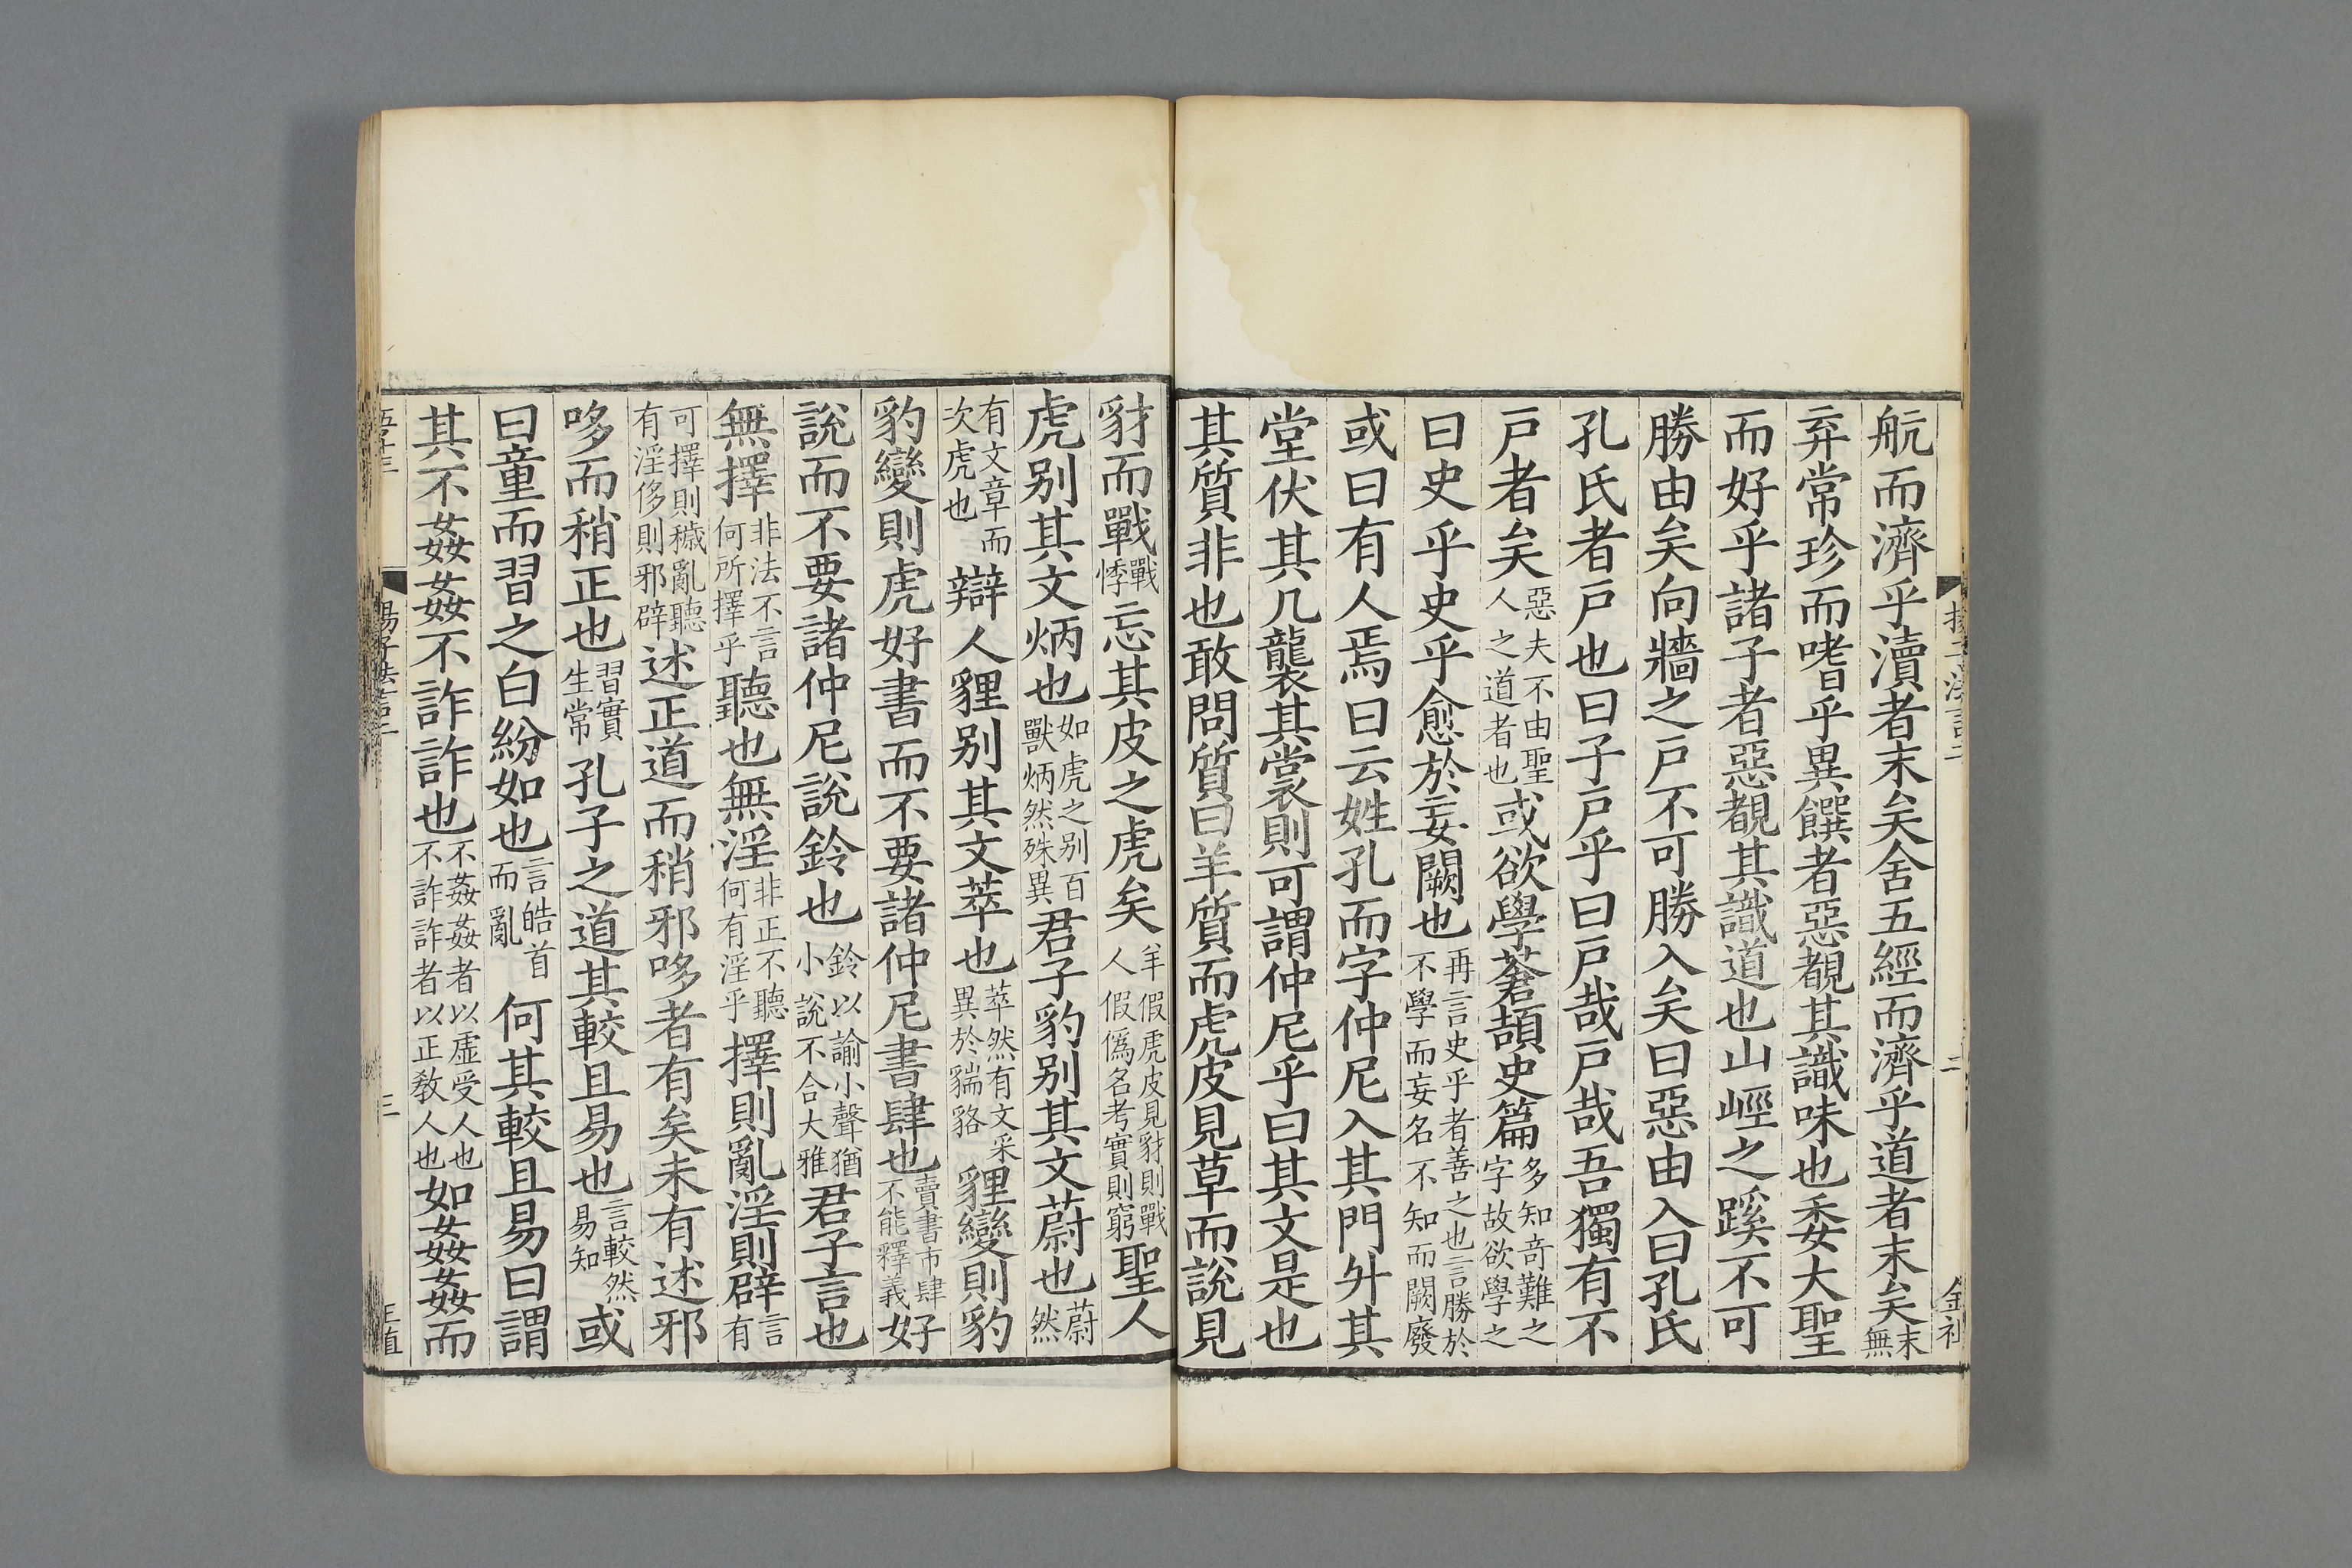 航而濟乎瀆者末矣舍五經而濟乎道者末矣末無
弃常珍而嗜乎異饌者惡覩其識味也委大聖
而好乎諸子者惡覩其識道也山㢣之蹊不可
勝由矣向牆之戸不可勝入矣曰惡由入曰孔氏
孔氏者戸也曰子戸乎曰戸哉戸哉吾獨有不
戸者矣惡夫不由聖人之道者也或欲學蒼頡史篇多知竒難之字故欲學之
曰史乎史乎愈於妄闕也再言史乎者善之也言勝於不學而妄名不知而闕廢
或曰有人焉曰云姓孔而字仲尼入其門升其
堂伏其几襲其裳則可謂仲尼乎曰其文是也
其質非也敢問質曰羊質而虎皮見草而說見
豺而戰戰悸忘其皮之虎矣羊假虎皮見豺則戰人假僞名考實則窮聖人
虎别其文炳也如虎之别百獸炳然殊異君子豹别其文蔚也蔚然
有文章而次虎也辯人貍别其文萃也萃然有文采異於貒貉貍變則豹
豹變則虎好書而不要諸仲尼書肆也賣書市肆不能釋義好
說而不要諸仲尼說鈴也鈴以諭小聲猶小說不合大雅君子言也
無擇非法不言何所擇乎聽也無淫非正不聽何有淫乎擇則亂淫則辟言有
可擇則穢亂聽有淫侈則邪辟述正道而稍邪哆者有矣未有述邪
哆而稍正也習實生常孔子之道其較且易也言較然易知或
曰童而習之白紛如也言皓首而亂何其較且易曰謂
其不姦姦不詐詐也不姦姦者以虛受人也不詐詐者以正敎人也如姦姦而
三